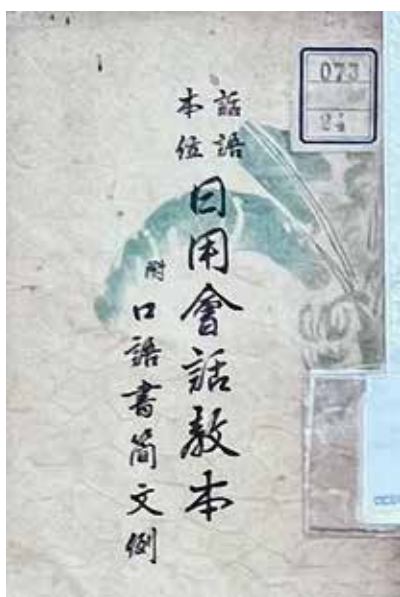 073
24
話語
本位
日用會話教本
附
口語書簡文例